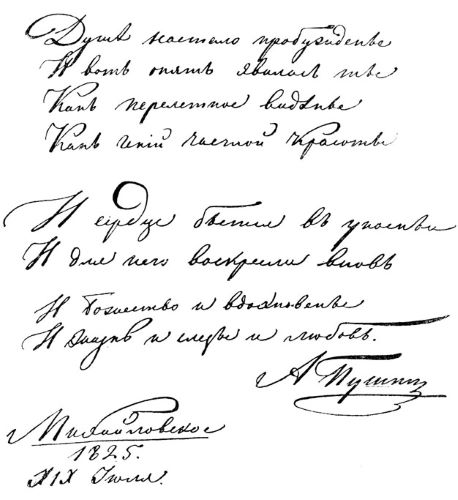 Душѣ настало пробужденье
И вотъ опять явилась ты
Какъ перелетное видѣнье
Какъ геній чистой красоты
И сердце бьется въ упоеньи
И для него воскресли вновь
И божество и вдохновенье
И жизнь и слезы и любовь.
А Пушкин
Михайловское
1825.
XIX Іюля.